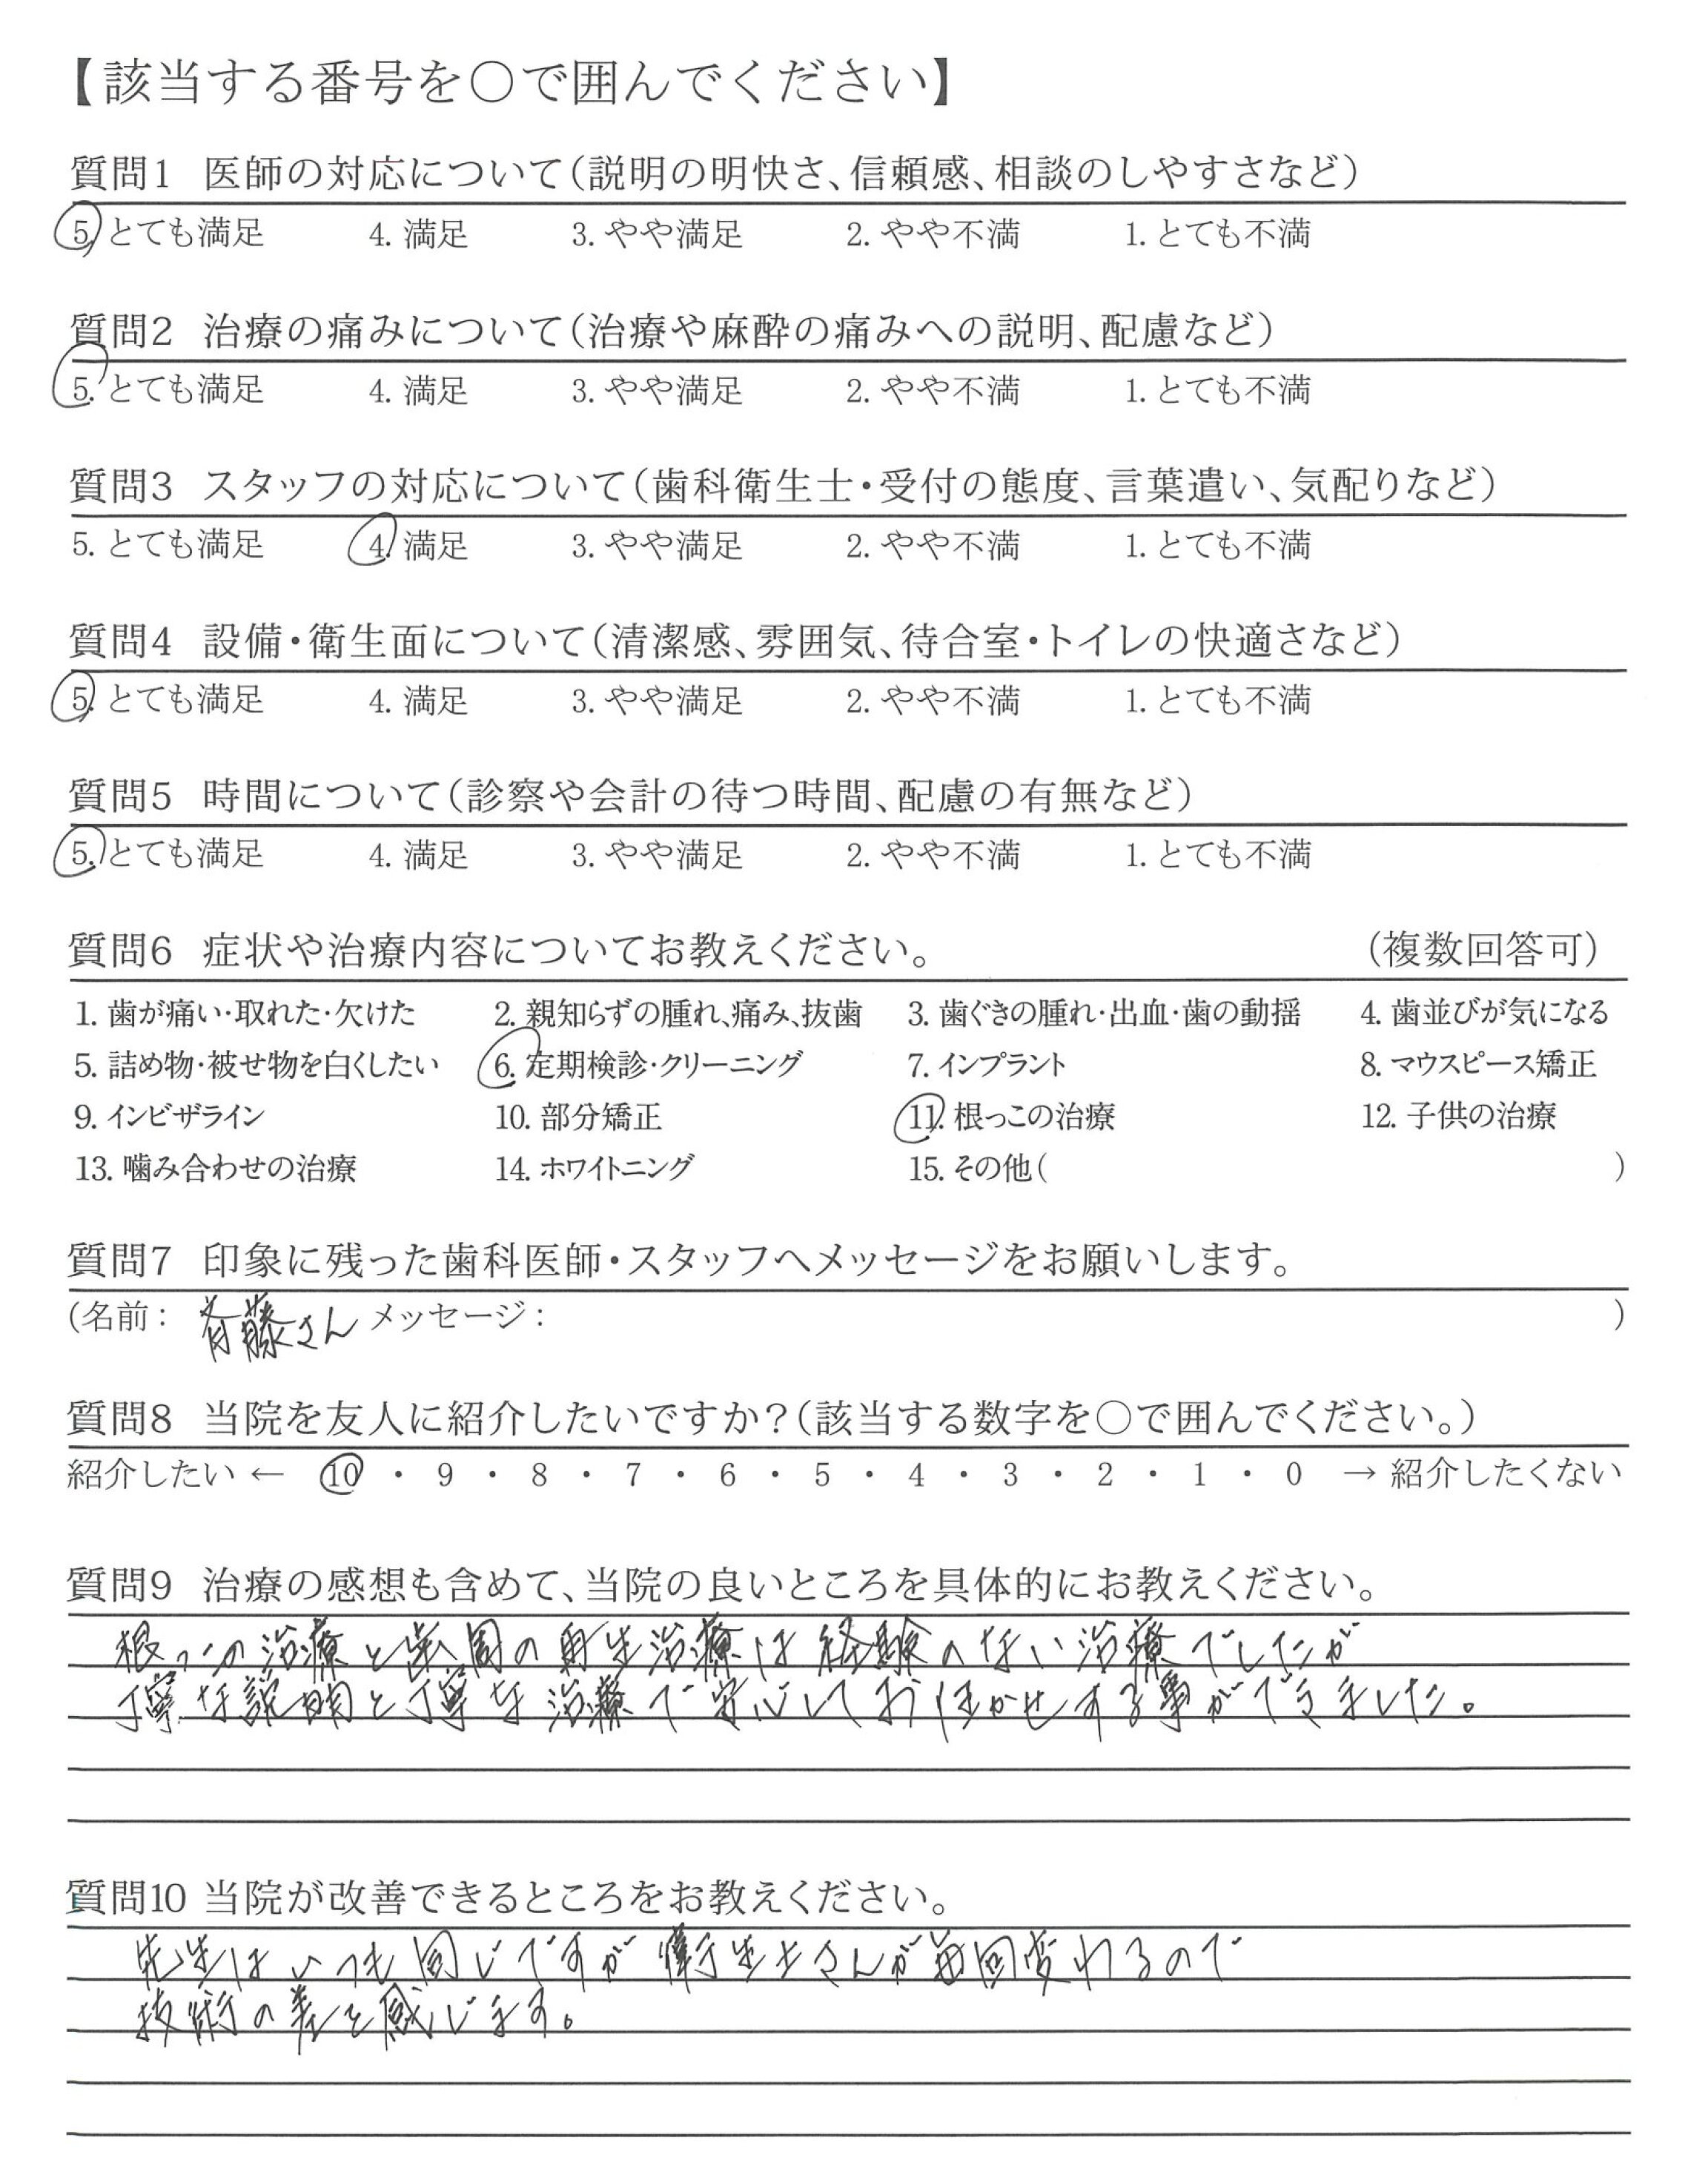 【該当する番号を○で囲んでください】
質問1 医師の対応について(説明の明快さ、信頼感、相談のしやすさなど)
5. とても満足 4. 満足 3. やや満足 2. やや不満 1. とても不満
質問2 治療の痛みについて(治療や麻酔の痛みへの説明、配慮など)
5. とても満足 4. 満足 3. やや満足 2. やや不満 1. とても不満
質問3 スタッフの対応について(歯科衛生士・受付の態度、言葉遣い、気配りなど)
5. とても満足 4. 満足 3. やや満足 2. やや不満 1. とても不満
質問4 設備・衛生面について(清潔感、雰囲気、待合室・トイレの快適さなど)
5. とても満足 4. 満足 3. やや満足 2. やや不満 1. とても不満
質問5 時間について(診察や会計の待つ時間、配慮の有無など)
5. とても満足 4. 満足 3. やや満足 2. やや不満 1. とても不満
質問6 症状や治療内容についてお教えください。 (複数回答可)
1. 歯が痛い・取れた・欠けた 2. 親知らずの腫れ、痛み、抜歯 3. 歯ぐきの腫れ・出血・歯の動揺 4. 歯並びが気になる
5. 詰め物・被せ物を白くしたい 6. 定期検診・クリーニング 7. インプラント 8. マウスピース矯正
9. インビザライン 10. 部分矯正 11. 根っこの治療 12. 子供の治療
13. 噛み合わせの治療 14. ホワイトニング 15. その他( )
質問7 印象に残った歯科医師・スタッフへメッセージをお願いします。
(名前: 斉藤さん メッセージ: )
質問8 当院を友人に紹介したいですか?(該当する数字を○で囲んでください。)
紹介したい ← 10 ・ 9 ・ 8 ・ 7 ・ 6 ・ 5 ・ 4 ・ 3 ・ 2 ・ 1 ・ 0 → 紹介したくない
質問9 治療の感想も含めて、当院の良いところを具体的にお教えください。
根っこの治療と歯周の再生治療は経験のない治療でしたが
丁寧な説明と丁寧な治療で安心しておまかせする事ができました。
質問10 当院が改善できるところをお教えください。
先生はいつも同じですが衛生士さんが毎回変わるので
技術の差を感じます。